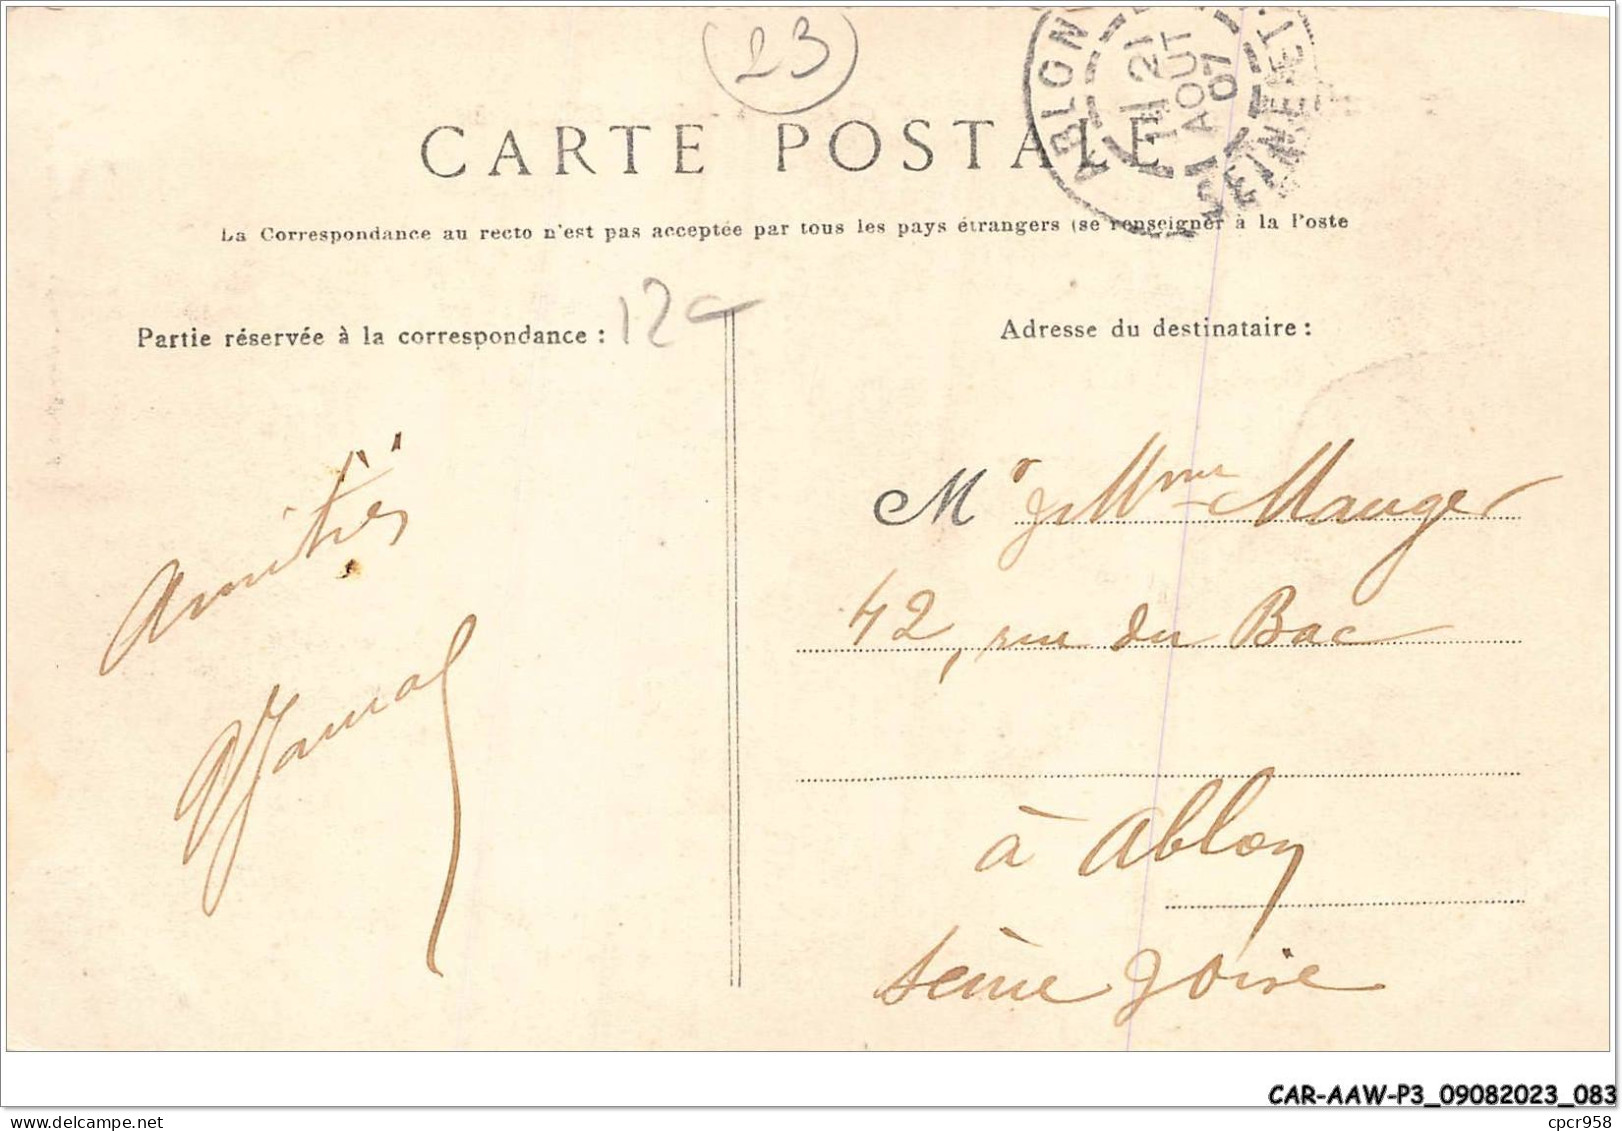 23
ABLON
SEINE-ET-
11 21
AOUT
07
CARTE POSTALE
La Correspondance au recto n'est pas acceptée par tous les pays étrangers (se renseigner à la Poste
Partie réservée à la correspondance :
12
Adresse du destinataire :
Amitiés
Mr & Mme Mauger
42, rue du Bac
à Ablon
Seine & Oise
CAR-AAW-P3_09082023_083
cpcr958